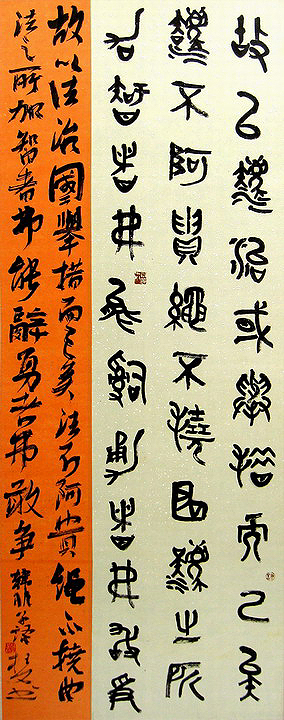 故㠯灋治或舉措而已矣
灋不阿貴繩不撓曲灋之所
加智者弗能辭勇者弗敢爭
故以法治國舉措而已矣法不阿貴繩不撓曲
法之所加智者弗能辭勇者弗敢爭 韓非子